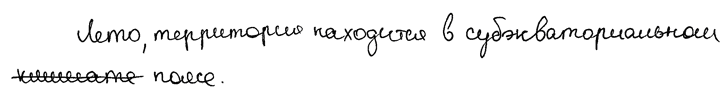 Лето, территория находится в субэкваториальном
климате поясе.